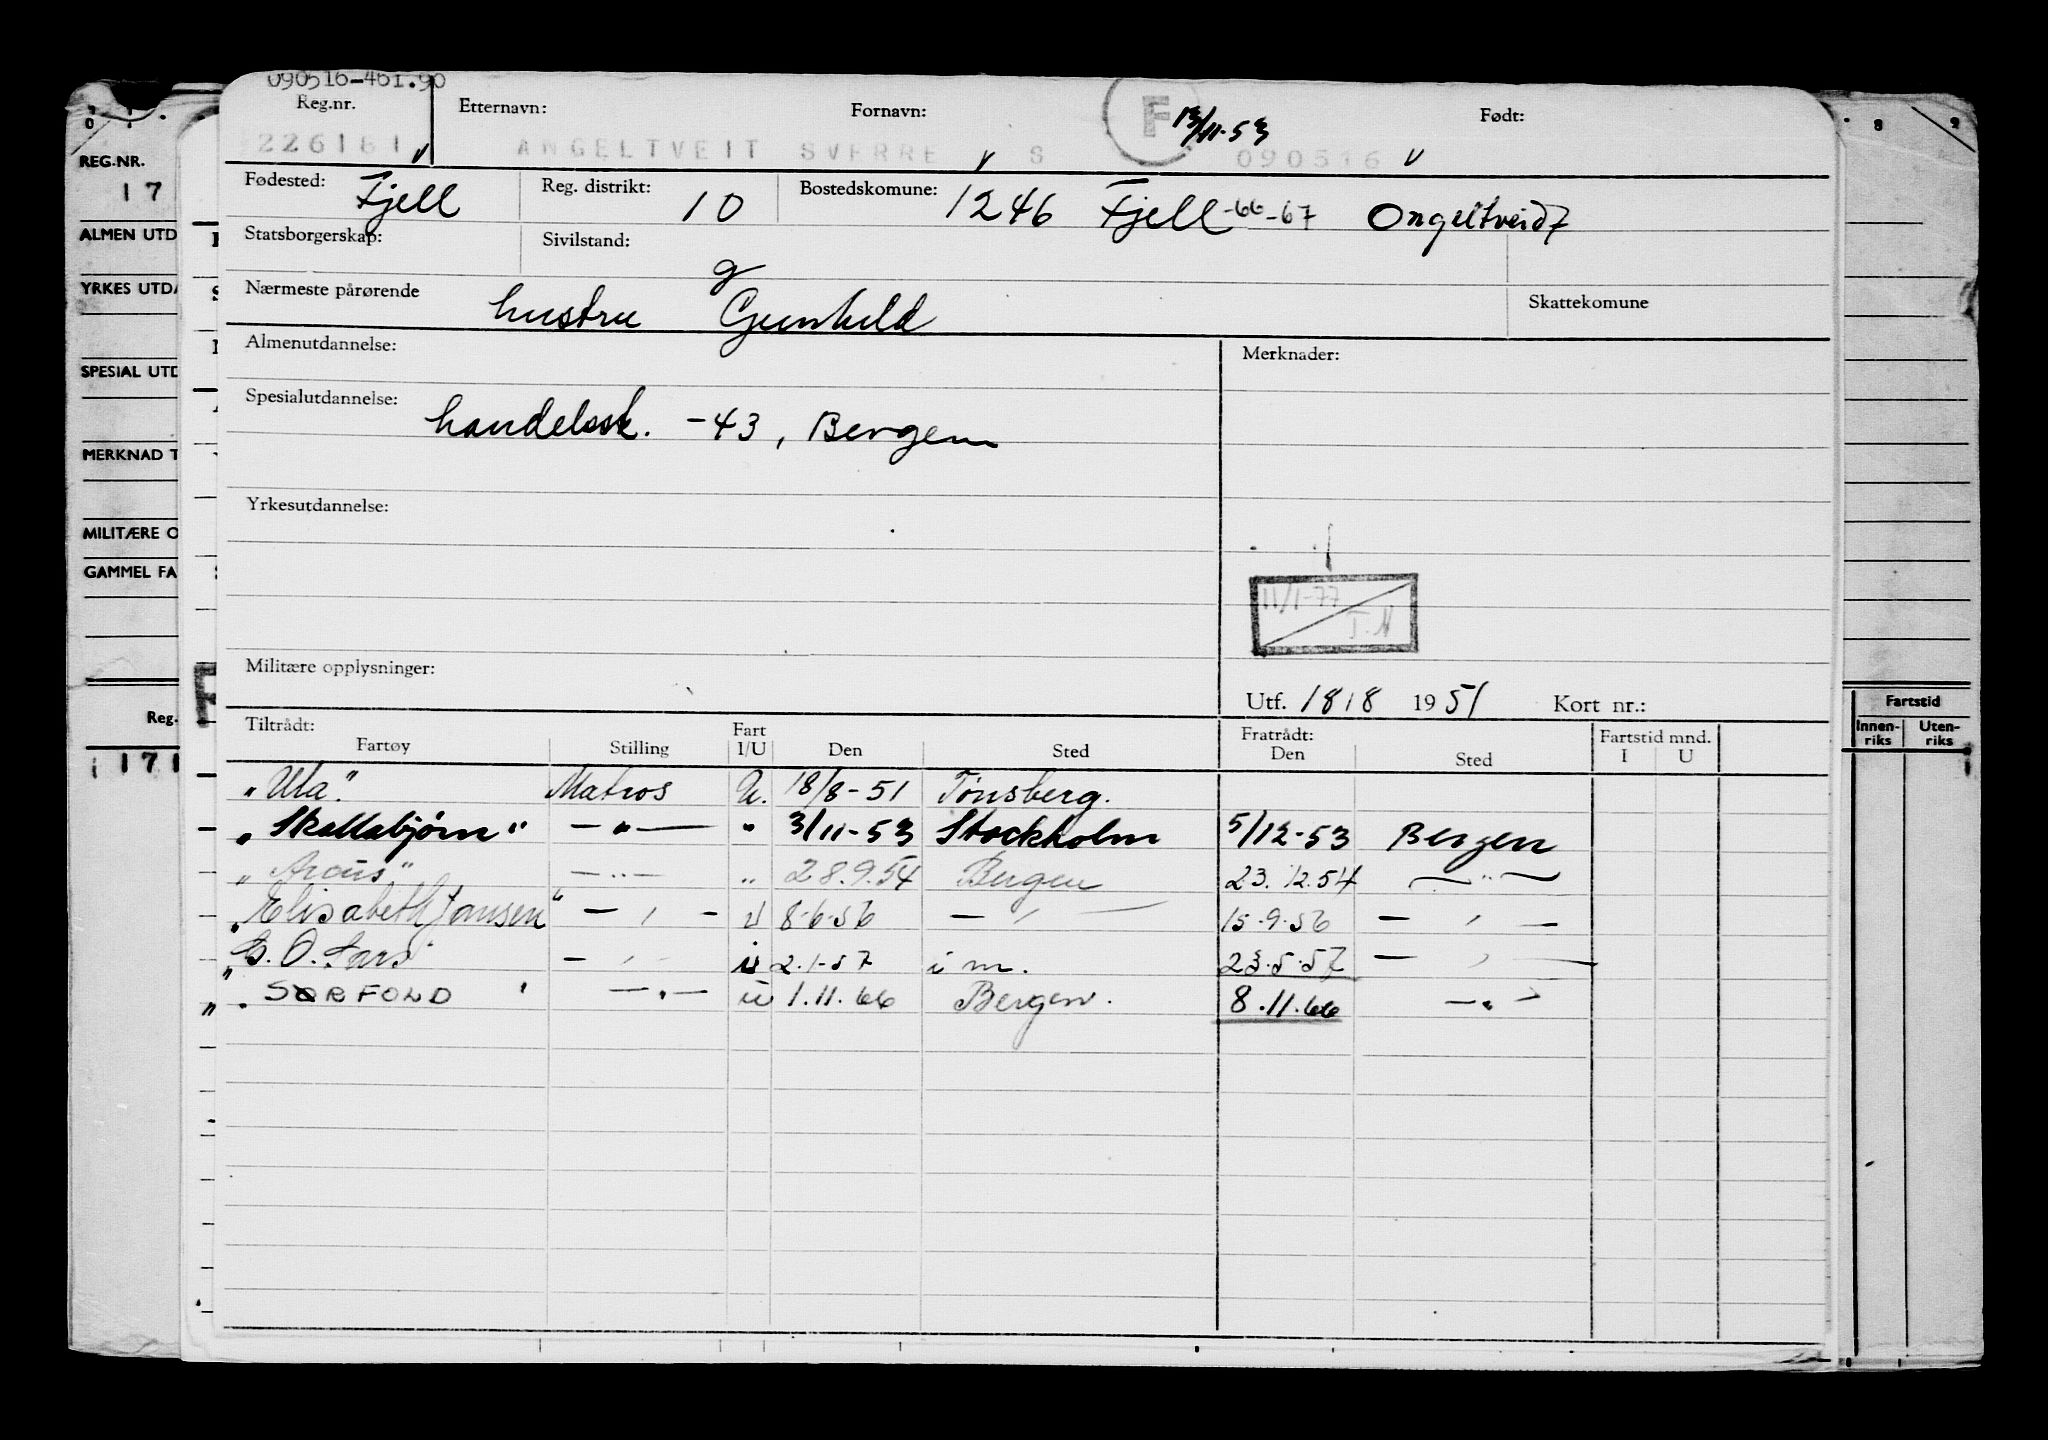 090516-461.90
Reg.nr. Etternavn: Fornavn: F 13/11-53 Født:
226161 v ANGELTVEIT SVERRE v S 090516 v
Fødested: Fjell Reg. distrikt: 10 Bostedskomune: 1246 Fjell -66-67 Ongeltveidt
Statsborgerskap: Sivilstand: g
Nærmeste pårørende hustru Gunhild Skattekomune
Almenutdannelse: Merknader:
Spesialutdannelse: handelssk. -43, Bergen
Yrkesutdannelse:
11/1-77
T.N
Militære opplysninger:
Utf. 18/8 1951 Kort nr.:
Tiltrådt: Fart Fratrådt: Fartstid mnd.
Fartøy Stilling I/U Den Sted Den Sted I U
"Ula". Matros U. 18/8-51 Tønsberg.
"Skallabjørn" — " — " 3/11-53 Stockholm 5/12-53 Bergen
"Arcus" — " — " 28.9.54 Bergen 23.12.54 — " —
"Elisabeth Jansen" — " — U 8-6-56 — " — 15.9.56 — " —
"G. O. Sars" — " — U 2.1-57 i m. 23.5.57 — " —
"SØRFOLD" — " — U 1.11.66 Bergen. 8.11.66 — " —
REG.NR.
17
ALMEN UTD
YRKES UTDA
SPESIAL UTD
MERKNAD T
MILITÆRE O
GAMMEL FA
Reg.
171
F
Fartstid
Innen-riks Uten-riks